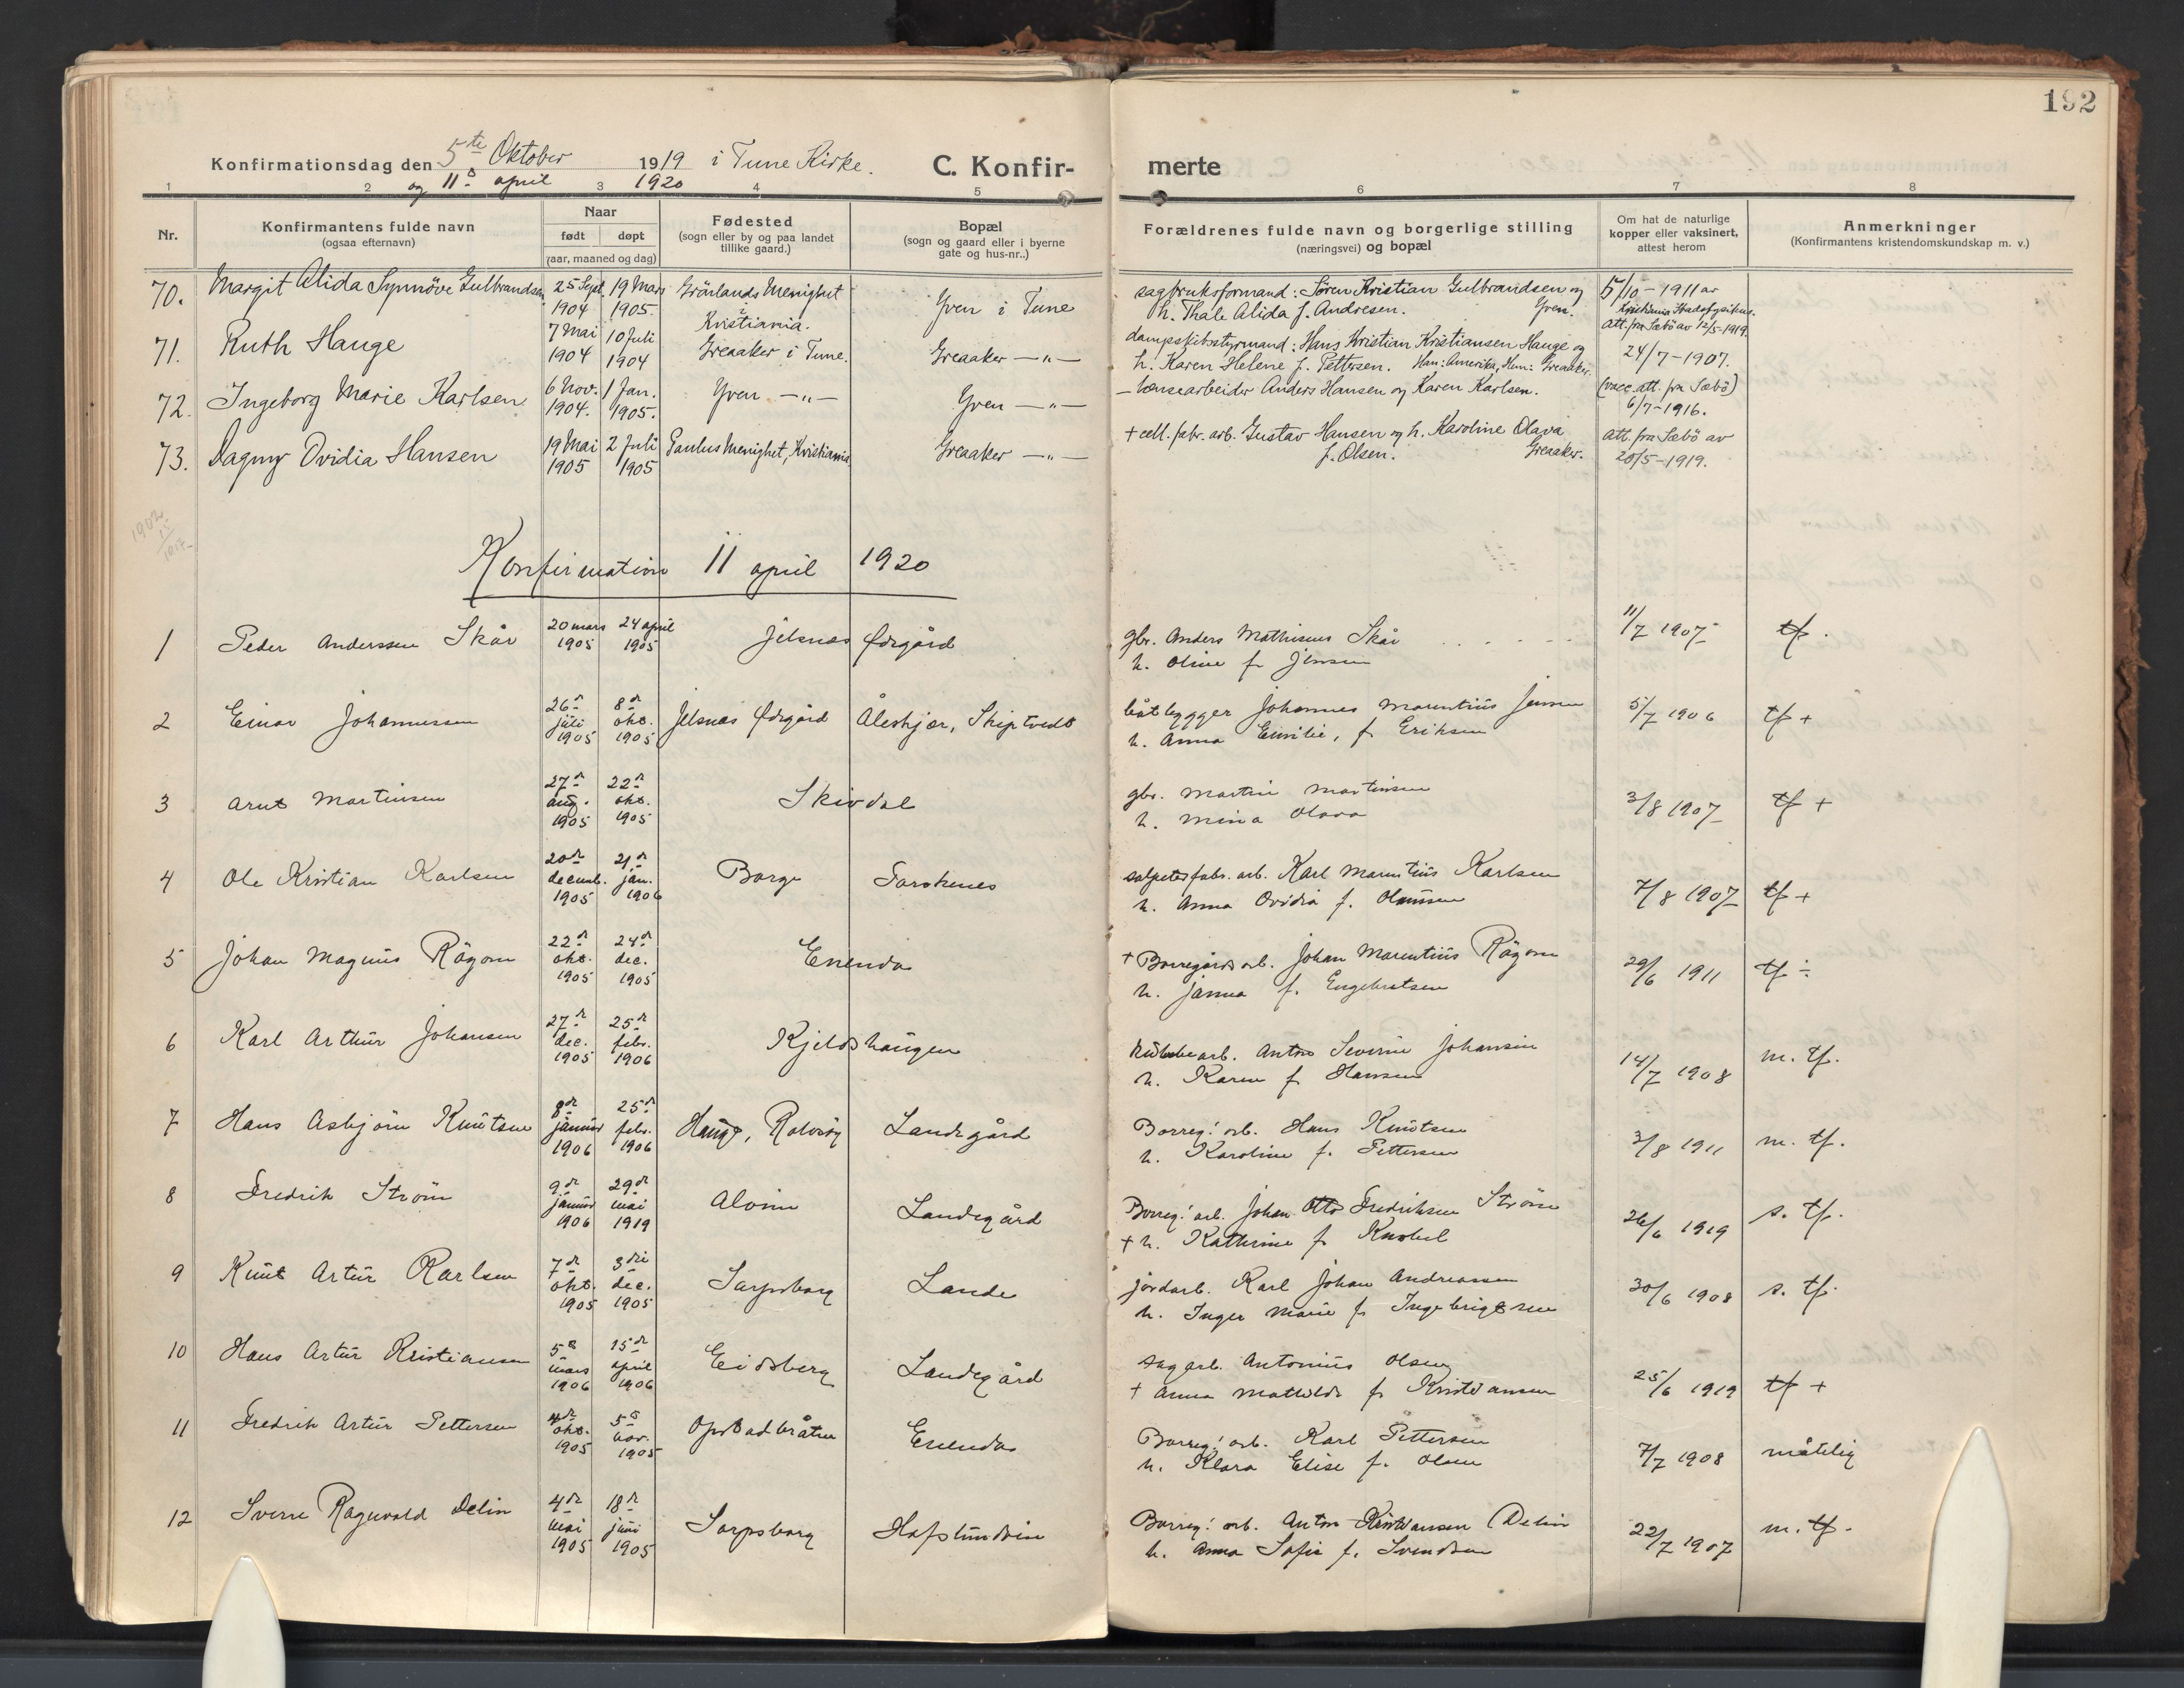 192
Konfirmationsdag den 5te Oktober 1919 i Tune Kirke. C. Konfir-
og 11. april 1920
merte
1 2 3 4 5 6 7 8
Nr.
Konfirmantens fulde navn
(ogsaa efternavn)
Naar
født døpt
(aar, maaned og dag)
Fødested
(sogn eller by og paa landet
tillike gaard.)
Bopæl
(sogn og gaard eller i byerne
gate og hus-nr..)
Forældrenes fulde navn og borgerlige stilling
(næringsvei) og bopæl
Om hat de naturlige
kopper eller vaksinert,
attest herom
Anmerkninger
(Konfirmantens kristendomskundskap m. v.)
70. Margit Alida Synnöve Gulbrandsen 25 Sept. 1904 19 Mars 1905. Grönlands Menighet Kristiania. Yven i Tune
sagbruksformand: Sören Kristian Gulbrandsen og
h. Thale Alida f. Andresen. Yven.
5/10 - 1911 av
Kristiania Stadsfysikus.
Att. fra Sæbö av 12/5-1919.
71. Ruth Hauge 7 Mai 1904 10 Juli 1904 Greaaker i Tune. Greaaker —"—
dampskibsstyrmand: Hans Kristian Kristiansen Hauge og
h. Karen Helene f. Pettersen. Han: Amerika, Hun: Greaaker.
24/7 - 1907.
72. Ingeborg Marie Karlsen 6 Nov. 1904. 1 Jan. 1905. Yven —"— Yven —"—
— lænsearbeider Anders Hansen og Karen Karlsen.
(vacc. att. fra Sæbö)
6/7 - 1916.
73. Dagny Ovidia Hansen 19 Mai 1905 2 Juli 1905 Paulus Menighet, Kristiania Greaaker —"—
+ cell. fabr. arb. Gustav Hansen og h. Karoline Olava
f. Olsen. Greaaker.
Att. fra Sæbö av
20/5-1919.
1902
Konfirmation 11 april 1920
1 Peder Anderssen Skår 20 mars 1905 24 april 1905 Jelsnæs Ørgård
gbr. Anders Mathisens Skår
h. Oline f. Jensen
11/7 1907 tf.
2 Einar Johannessen 26d juli 1905 8d okt. 1905 Jelsnæs Ørgård Åleskjær, Skiptvedt
båtbygger Johannes Marentius Jensen
h. Anna Emilie, f. Eriksen
5/7 1906 tf +
3 Arnt Martinsen 27d aug. 1905 22d okt. 1905 Skivdal
gbr. Martin Martinsen
h. Mina Olava
3/8 1907 tf +
4 Ole Kristian Karlsen 20d decemb. 1905 21d jan. 1906 Borge Torskenes
salpeterfabr. arb. Karl Marentius Karlsen
h. Anna Ovidia f.
7/8 1907 tf +
5 Johan Magnus Rågom 22d okt. 1905 24d dec. 1905 Enenda
+ Borregårds arb. Johan Marentius Rågom
h. Janna f. Engebretsen
29/6 1911 tf ÷
6 Karl Arthur Johansen 27d dec. 1905 25d febr. 1906 Kjeldshaugen
arb. Anton Severin Johansen
h. Karen f. Hansen
14/7 1908 m. tf.
7 Hans Asbjörn Knutsen 8de januar 1906 25d febr. 1906 Hauge, Rolvsöy Landegård
Borreg! arb. Hans Knutsen
h. Karoline f. Pettersen
3/8 1911 m. tf.
8 Fredrik Ström 9de januar 1906 29de mai 1919 Alvim Landegård
Borreg! arb. Johan Otto Fredriksen Ström
+ h. Kathrine f. Knobel
26/6 1919 s. tf.
9 Knut Artur Karlsen 7de okt. 1905 3die dec. 1905 Sarpsborg Lande
jordarb. Karl Johan Andreassen
h. Inger Marie f. Ingebrigtsen
30/6 1908 s. tf.
10 Hans Artur Kristiansen 5te mars 1906 15de april 1906 Eidsberg Landegård
sagarb. Antonius Olsen
+ Anna Mathilde f. Kristiansen
25/6 1919 tf +
11 Fredrik Artur Pettersen 4de okt. 1905 5te nov. 1905 Opstadbråten Enenda
Borreg! arb. Karl Pettersen
h. Klara Elise f. Olsen
7/7 1908 måtelig
12 Sverre Ragnvald Delin 4de mai 1905 18de juni 1905 Sarpsborg Hafslundsin
Borreg! arb. Anton Kristiansen Delin
h. Anna Sofie f. Svendsen
22/7 1907 m. tf.